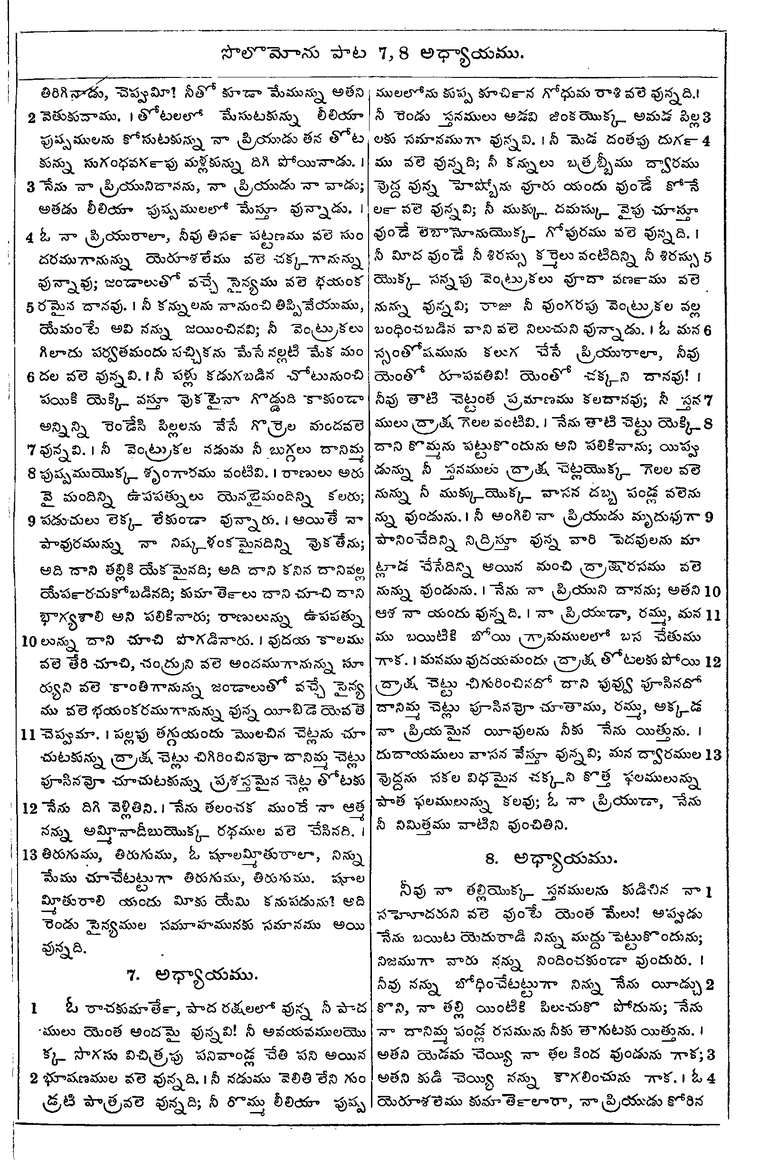 సొలొమోను పాట 7, 8 అధ్యాయము.
తిరిగినాడు, చెప్వుమీ! నీతో కూడా మేమున్ను అతని
2 వెతుకుదాము. । తోటలలో మేసుటకున్ను లీలియా
పుష్పములను కోసుటకున్ను నా ప్రియుడు తన తోట
కున్ను సుగంధవర్గపు మళ్లకున్ను దిగి పోయినాడు. ।
3 నేను నా ప్రియునిదానను, నా ప్రియుడు నా వాడు;
అతడు లీలియా పుష్పములలో మేస్తూ వున్నాడు. ।
4 ఓ నా ప్రియురాలా, నీవు తిర్సా పట్టణము వలె సుం
దరముగానున్ను యెరూశలేము వలె చక్కగానున్ను
వున్నావు; జండాలుతో వచ్చే సైన్యము వలె భయంక
5 రమైన దానవు. । నీ కన్నులను నానుంచి తిప్పివేయుము,
యేమంటే అవి నన్ను జయించినవి; నీ వెంట్రుకలు
గిలాదు పర్వతమందు పచ్చికను మేసే నల్లటి మేక మం
6 దల వలె వున్నవి. । నీ పళ్లు కడుగబడిన చోటునుంచి
పయికి యెక్కి వస్తూ వుకటైనా గొడ్డుది కాకుండా
అన్నిన్ని రెండేసి పిల్లలను వేసే గొర్రెల మందవలె
7 వున్నవి. । నీ వెంట్రుకల నడుమ నీ బుగ్గలు దానిమ్మ
8 పుష్పముయొక్క శృంగారము వంటివి. । రాణులు అరు
వై మందిన్ని ఉపపత్నులు యెనభైమందిన్ని కలరు;
9 పడుచులు లెక్క లేకుండా వున్నారు. । అయితే నా
పావురమున్ను నా నిష్కళంకమైనదిన్ని వుకతేను;
అది దాని తల్లికి యేకమైనది; అది దాని కనిన దానివల్ల
యేర్పరచుకోబడినది; కుమార్తెలు దాని చూచి దాని
భాగ్యశాలి అని పలికినారు; రాణులున్ను ఉపపత్ను
10 లున్ను దాని చూచి పొగడినారు. । వుదయ కాలము
వలె తేరి చూచి, చంద్రుని వలె అందముగానున్ను సూ
ర్యుని వలె కాంతిగానున్ను జండాలుతో వచ్చే సైన్య
ము వలె భయంకరముగానున్ను వున్న యీబిడె యెవతె
11 చెప్వుమా. । పల్లపు తగ్గుయందు మొలచిన చెట్లను చూ
చుటకున్ను ద్రాక్ష చెట్లు చిగిరించినవో దానిమ్మ చెట్లు
పూసినవో చూచుటకున్ను ప్రశస్తమైన చెట్ల తోటకు
12 నేను దిగి వెళ్లితిని. । నేను తలంచక ముందే నా ఆత్మ
నన్ను అమ్మినాదీబుయొక్క రథముల వలె చేసినది. ।
13 తిరుగుము, తిరుగుము, ఓ షూలమ్మితురాలా, నిన్ను
మేము చూచేటట్టుగా తిరుగుము, తిరుగుము. షూల
మ్మితురాలి యందు మీకు యేమి కనుపడును! అది
రెండు సైన్యముల సమూహమునకు సమానము అయి
వున్నది.
7. అధ్యాయము.
1 ఓ రాచకుమార్తె, పాద రక్షలలో వున్న నీ పాద
ములు యెంత అందమై వున్నవి! నీ అవయవములయొ
క్క సొగసు విచిత్రపు పనివాండ్ల చేతి పని అయిన
2 భూషణముల వలె వున్నది. । నీ నడుము వెలితి లేని గుం
డ్రటి పాత్రవలె వున్నది; నీ రొమ్ము లీలియా పుష్ప
ములలోను కుప్ప కూర్చిన గోధుమ రాశి వలె వున్నది.।
నీ రెండు స్తనములు అడవి జింకయొక్క అమడ పిల్ల 3
లకు సమానముగా వున్నవి. । నీ మెడ దంతపు దుర్గ 4
ము వలె వున్నది; నీ కన్నులు బత్రబ్బీము ద్వారము
వుద్ద వున్న హెష్బోను వూరు యందు వుండే కోనే
ర్ల వలె వున్నవి; నీ ముక్కు దమస్కు వైపు చూస్తూ
వుండే లెబానోనుయొక్క గోపురము వలె వున్నది. ।
నీ మీద వుండే నీ శిరస్సు కర్మెలు వంటిదిన్ని నీ శిరస్సు 5
యొక్క సన్నపు వెంట్రుకలు వూదా వర్ణము వలె
నున్ను వున్నవి; రాజు నీ వుంగరపు వెంట్రుకల వల్ల
బంధించబడిన వాని వలె నిలుచుని వున్నాడు. । ఓ మన 6
స్సంతోషమును కలుగ చేసే ప్రియురాలా, నీవు
యెంతో రూపవతివి! యెంతో చక్కని దానవు! ।
నీవు తాటి చెట్టంత ప్రమాణము కలదానవు; నీ స్తన 7
ములు ద్రాక్ష గెలల వంటివి. । నేను తాటి చెట్టు యెక్కి 8
దాని కొమ్మను పట్టుకొందును అని పలికినాను; యిప్వు
డున్ను నీ స్తనములు ద్రాక్ష చెట్లయొక్క గెలల వలె
నున్ను నీ ముక్కుయొక్క వాసన దబ్బ పండ్ల వలెను
న్ను వుండును. । నీ అంగిలి నా ప్రియుడు మృదువుగా 9
పానించేదిన్ని నిద్రిస్తూ వున్న వారి పెదవులను మా
ట్లాడ చేసేదిన్ని అయిన మంచి ద్రాక్షారసము వలె
నున్ను వుండును. । నేను నా ప్రియుని దానను; అతని 10
ఆశ నా యందు వున్నది. । నా ప్రియుడా, రమ్ము, మన 11
ము బయిటికి బోయి గ్రామములలో బస చేతుము
గాక. । మనము వుదయమందు ద్రాక్ష తోటలకు పోయి 12
ద్రాక్ష చెట్టు చిగురించినదో దాని పువ్వు పూసినదో
దానిమ్మ చెట్లు పూసినవో చూతాము, రమ్ము, అక్కడ
నా ప్రియమైన యీవులను నీకు నేను యిత్తును. ।
దుదాయములు వాసన వేస్తూ వున్నవి; మన ద్వారముల 13
వుద్దను సకల విధమైన చక్కని కొత్త ఫలములున్ను
పాత ఫలములున్ను కలవు; ఓ నా ప్రియుడా, నేను
నీ నిమిత్తము వాటిని వుంచితిని.
8. అధ్యాయము.
నీవు నా తల్లియొక్క స్తనములను కుడిచిన నా 1
సహోదరుని వలె వుంటే యెంత మేలు! అప్పుడు
నేను బయిట యెదురాడి నిన్ను ముద్దు పెట్టుకొందును;
నిజముగా వారు నన్ను నిందించకుండా వుందురు. ।
నీవు నన్ను బోధించేటట్టుగా నిన్ను నేను యీడ్చు 2
కొని, నా తల్లి యింటికి పిలుచుకొ పోదును; నేను
నా దానిమ్మ పండ్ల రసమును నీకు తాగుటకు యిత్తును. ।
అతని యెడమ చెయ్యి నా తల కింద వుండును గాక; 3
అతని కుడి చెయ్యి నన్ను కాగలించును గాక. । ఓ 4
యెరూశలేము కుమార్తెలారా, నా ప్రియుడు కోరిన